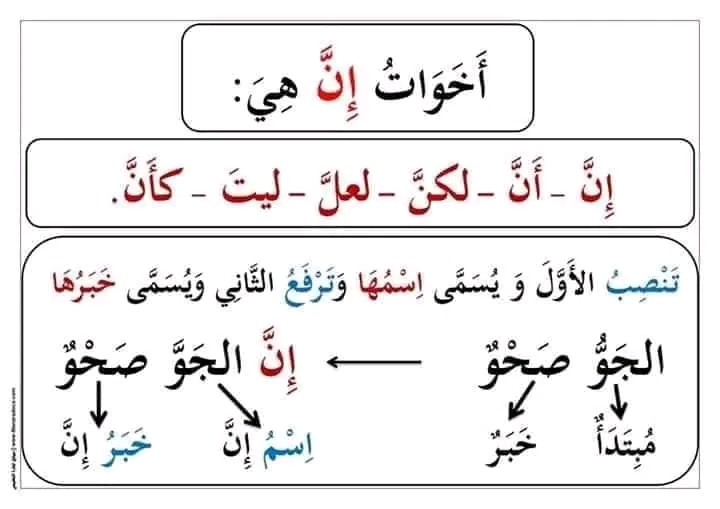 أَخَوَاتُ إِنَّ هِيَ:
إِنَّ – أَنَّ – لكنَّ – لعلَّ – ليتَ – كأَنَّ.
تَنْصِبُ الأَوَّلَ وَ يُسَمَّى اِسْمُهَا وَتَرْفَعُ الثَّانِي وَيُسَمَّى خَبَرُهَا
الجَوُّ صَحْوٌ ← إِنَّ الجَوَّ صَحْوٌ
مُبِتَدَأٌ خَبَرٌ اِسْمُ إِنَّ خَبَرُ إِنَّ